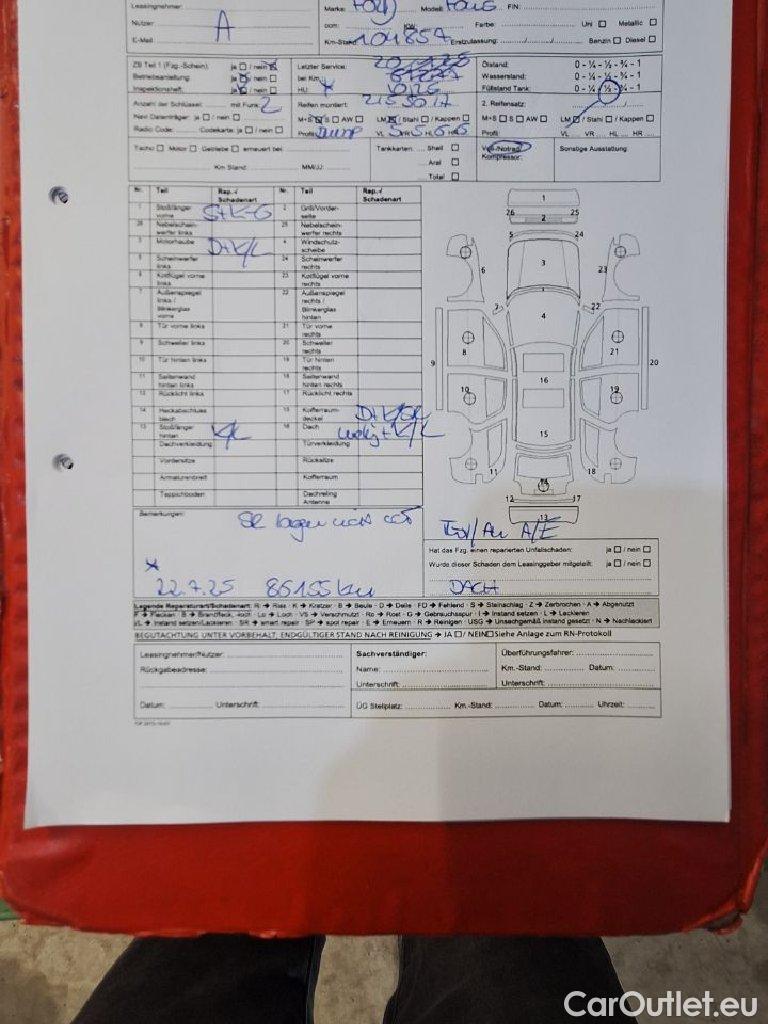 Leasingnehmer:
Marke: Ford Modell: FIN:
Nutzer: Farbe: Uni Metallic
A
E-Mail Km-Stand: 104857 Erstzulassung: Benzin Diesel
ZB Teil 1 (Fzg.-Schein): ja / nein Letzter Service:
Ölstand: 0 - ¼ - ½ - ¾ - 1
Betriebsanleitung: ja / nein bei Km:
Wasserstand: 0 - ¼ - ½ - ¾ - 1
Inspektionsheft: ja / nein HU: 10/25
Füllstand Tank: 0 - ¼ - ½ - ¾ - 1
Anzahl der Schlüssel: mit Funk: 2 Reifen montiert: 215 50 17
2. Reifensatz:
Navi Datenträger: ja / nein M+S S AW LM / Stahl / Kappen
M+S S AW LM / Stahl / Kappen
Radio Code: Codekarte: ja / nein Profil: VL 5 VR 5 HL 6 HR 6
Profil: VL VR HL HR
Tacho Motor Getriebe erneuert bei
Tankkarten: Shell
Aral
Total
Kompressor:
Sonstige Ausstattung:
Km Stand: MM/JJ:
Nr. Teil Rep.-/ Schadenart Nr. Teil Rep.-/ Schadenart
1 Stoßfänger vorne 2 Grill/Vorderseite
26 Nebelscheinwerfer links 25 Nebelscheinwerfer rechts
3 Motorhaube D+K/L 4 Windschutzscheibe
5 Scheinwerfer links 24 Scheinwerfer rechts
6 Kotflügel vorne links 23 Kotflügel vorne rechts
7 Außenspiegel links / Blinkerglas vorne 22 Außenspiegel rechts / Blinkerglas hinten
8 Tür vorne links 21 Tür vorne rechts
9 Schweller links 20 Schweller rechts
10 Tür hinten links 19 Tür hinten rechts
11 Seitenwand hinten links 18 Seitenwand hinten rechts
12 Rücklicht links 17 Rücklicht rechts
14 Heckabschlussblech 15 Kofferraumdeckel
13 Stoßfänger hinten K/L 16 Dach
Dachverkleidung Türverkleidung
Vordersitze Rücksitze
Armaturenbrett Kofferraum
Teppichboden Dachreling Antenne
1
26 2 25
5 24
3
6 23
7 22
4
8 21
9 20
16
10 19
15
11 18
14
12 17
13
Bemerkungen:
22.7.25 86155 km
A/E
Hat das Fzg. einen reparierten Unfallschaden: ja / nein
Wurde dieser Schaden dem Leasinggeber mitgeteilt: ja / nein
DACH
Legende Reparaturart/Schadenart: R → Riss · K → Kratzer · B → Beule · D → Delle · FD → Fehlend · S → Steinschlag · Z → Zerbrochen · A → Abgenutzt
F → Flecken · B → Brandfleck, -loch · Lo → Loch · VS → Verschmutzt · Ro → Rost · G → Gebrauchsspur · I → Instand setzen · L → Lackieren
I/L → Instand setzen/Lackieren · SR → smart repair · SP → spot repair · E → Erneuern · R → Reinigen · UISG → Unsachgemäß instand gesetzt · N → Nachlackiert
BEGUTACHTUNG UNTER VORBEHALT, ENDGÜLTIGER STAND NACH REINIGUNG → JA / NEIN Siehe Anlage zum RN-Protokoll
Leasingnehmer/Nutzer: Sachverständiger: Überführungsfahrer:
Rückgabeadresse: Name: Km.-Stand: Datum:
Unterschrift: Unterschrift:
Datum: Unterschrift: ÜG Stellplatz: Km.-Stand: Datum: Uhrzeit:
CarOutlet.eu